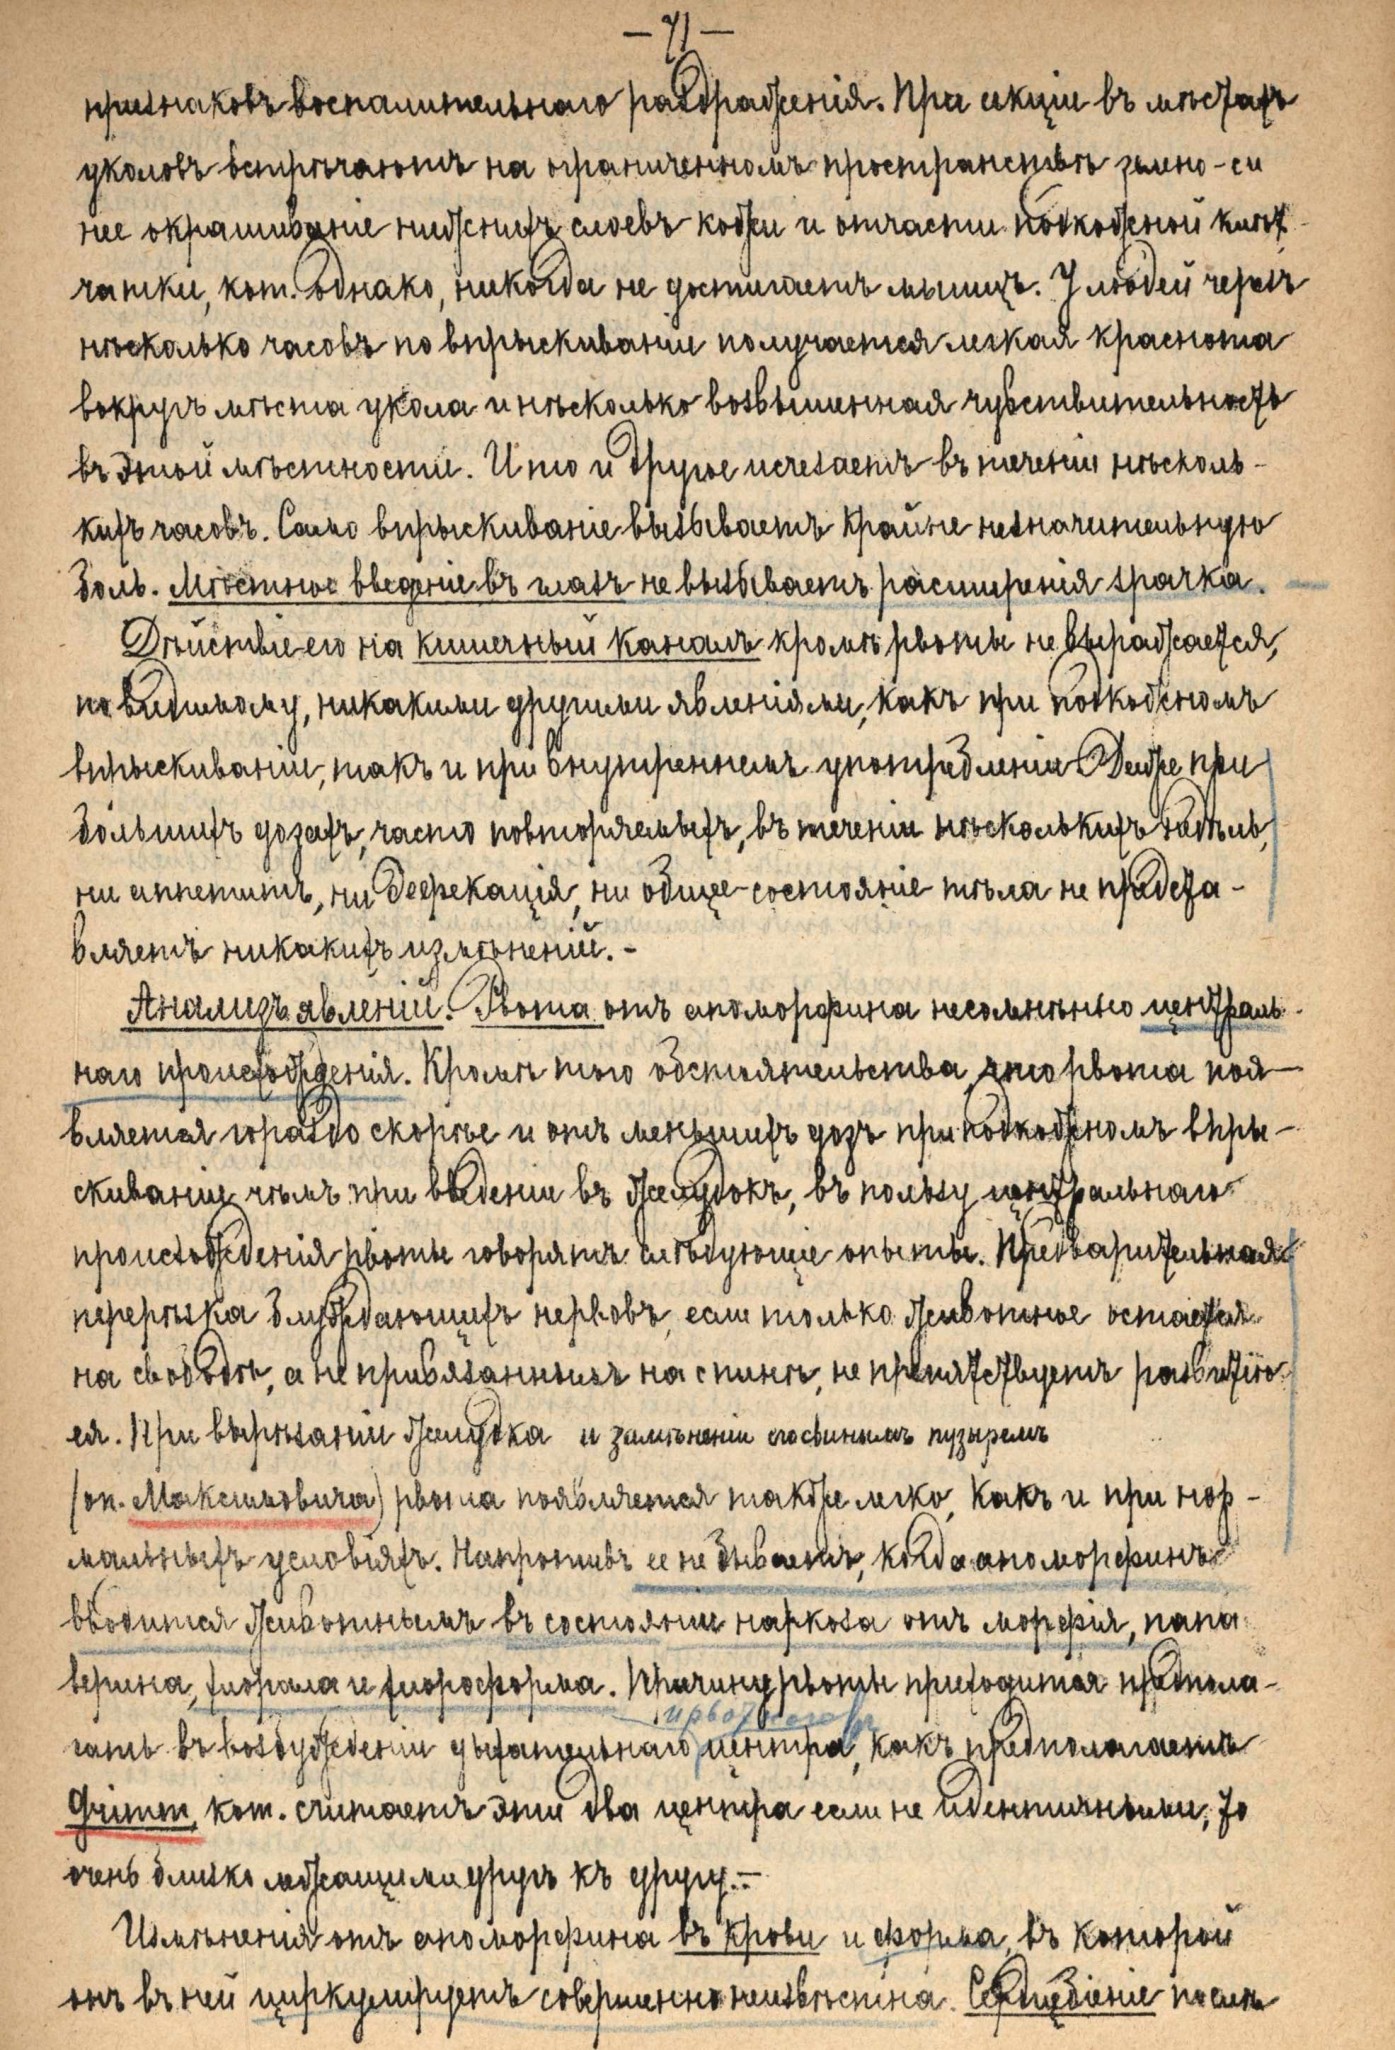 — 71 —
признаковъ воспалительнаго раздраженія. При секціи въ мѣстахъ
уколовъ встрѣчаютъ на ограниченномъ пространствѣ зелено-си
нее окрашиваніе нижнихъ слоевъ кожи и отчасти подкожной клѣт-
чатки, кот. однако, никогда не достигаетъ мышцъ. У людей черезъ
нѣсколько часовъ по впрыскиваніи получается легкая краснота
вокругъ мѣста укола и нѣсколько возвышенная чувствительность
въ этой мѣстности. И то и другое исчезаетъ въ теченіи нѣсколь-
кихъ часовъ. Само впрыскиваніе вызываетъ крайне незначительную
боль. Мѣстное введеніе въ глазъ не вызываетъ расширенія зрачка.
Дѣйствіе его на кишечный каналъ кромѣ рвоты не выражается,
по видимому, никакими другими явленіями, какъ при подкожномъ
впрыскиваніи, такъ и при внутреннемъ употребленіи. Даже при
большихъ дозахъ, часто повторяемыхъ, въ теченіи нѣсколькихъ недѣль,
ни аппетитъ, ни дефекація, ни общее состояніе тѣла не предста-
вляетъ никакихъ измѣненій. -
Анализъ явленій. Рвота отъ апоморфина несомнѣнно централь-
наго происхожденія. Кромѣ того обстоятельства, что рвота поя-
вляется гораздо скорѣе и отъ меньшихъ дозъ при подкожномъ впры-
скиваніи, чѣмъ при введеніи въ желудокъ, въ пользу центральнаго
происхожденія рвоты говорятъ слѣдующіе опыты. Предварительная
перерѣзка блуждающихъ нервовъ, если только животное остается
на свободѣ, а не привязаннымъ на спинѣ, не препятствуетъ развитію
ея. При вырѣзаніи желудка и замѣненіи его свинымъ пузыремъ
(оп. Максимовича) рвота появляется также легко, какъ и при нор-
мальныхъ условіяхъ. Напротивъ ее не бываетъ, когда апоморфинъ
вводится животнымъ въ состояніи наркоза отъ морфія, папа
верина, хлорала и хлороформа. Причину рвоты приходится предпола-
и рвотнаго
гать въ возбужденіи дыхательнаго центра, какъ предполагаетъ
Grimm, кот. считаетъ эти два центра если не идентичными, то
очень близко лежащими другъ къ другу. -
Измѣненія отъ апоморфина въ крови и форма, въ которой
онъ въ ней циркулируетъ совершенно неизвѣстна. Сердцебіеніе послѣ